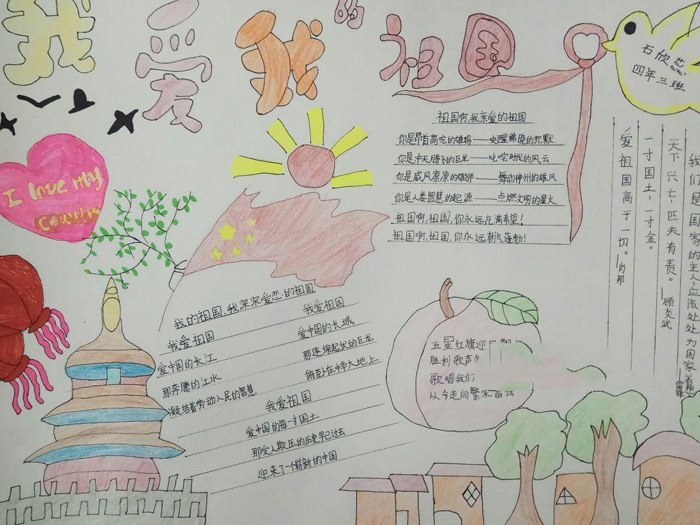 我爱我的祖国
石欣
四年三班
I love my
祖国啊,我亲爱的祖国
你是昂首高吭的雄鸡——唤醒拂晓的沉默
你是冲天腾飞的巨龙——叱咤时代的风云
你是威风凛凛的雄师——舞动神州的雄风
你是人类智慧的起源——点燃文明的星火
祖国啊,祖国,你永远充满希望!
祖国啊,祖国,你永远朝气蓬勃!
我们是国家的主人,应该处处为国家着想。
天下兴亡,匹夫有责。——顾炎武
一寸国土,一寸金。
爱祖国高于一切。——肖邦
我的祖国,我深深爱恋的祖国
我爱祖国
爱中国的长江
那奔腾的江水
凝结着劳动人民的智慧
我爱祖国
爱中国的长城
那连绵起伏的巨龙
俯卧在中华大地上
我爱祖国
爱中国的每一寸国土
那受人欺压的历史早已过去
迎来了一个崭新的中国
五星红旗迎
胜利歌声
歌唱我们
从今走向繁荣富强